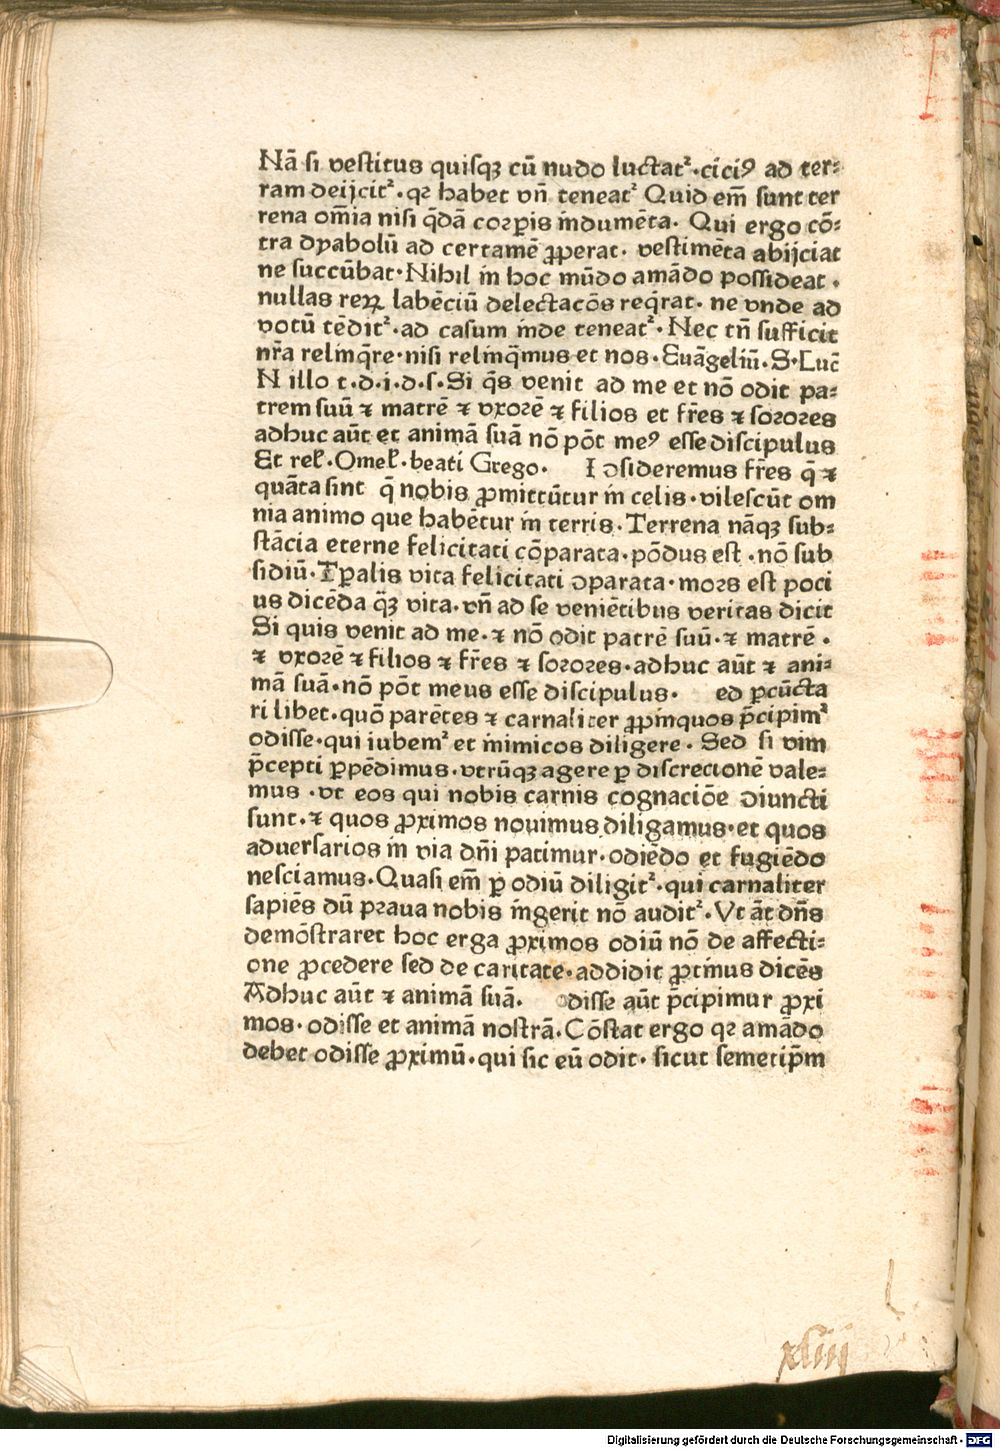 Nā si vestitus quisqꝫ cū nudo luctatᷣ·citiꝰ ad ter⸗
ram deijcitᷣ·qꝛ habet vn̄ teneatᷣ Quid em̄ sunt ter
rena om̄ia nisi q̄dā coꝛꝑis indumēta. Qui ergo cō⸗
tra dyabolū ad certamē ꝓperat· vestimēta abijciat
ne succūbat·Nihil in hoc mūdo amādo possideat ·
nullas reꝝ labēciū delectacōs req̄rat· ne vnde ad
votū tēditᷣ·ad casum inde teneatᷣ·Nec tn̄ sufficit
nr̄a relinq̄re·nisi relinq̄mus et nos·Euāgeliū·S·Luc̄
N illo t·d·i·d·s·Si q̄s venit ad me et nō odit pa⸗
trem suū ⁊ matrē ⁊ vxoꝛē ⁊ filios et fr̄es ⁊ soꝛoꝛes
adhuc aūt et animā suā nō pōt meꝰ esse discipulus
Et rel̄·Omel̄·beati Grego·    I ↄsideremus fr̄es q̄ ⁊
quāta sint q̄ nobis ꝓmittūtur in celis·vilescūt om
nia animo que habētur in terris·Terrena nāqꝫ sub⸗
stācia eterne felicitati cōparata·pōdus est·nō sub
sidiū·Tꝑalis vita felicitati ↄparata·moꝛs est poci
us dicēda q̄ꝫ vita·vn̄ ad se veniētibus veritas dicit
Si quis venit ad me·⁊ nō odit patrē suū·⁊ matrē ·
⁊ vxoꝛē ⁊ filios ⁊ fr̄es ⁊ soꝛoꝛes·adhuc aūt ⁊ ani⸗
mā suā·nō pōt meus esse discipulus·    ed ꝑcūcta
ri libet·quō parētes ⁊ carnaliter ꝓpinquos p̄cipimᷣ
odisse·qui iubemᷣ et inimicos diligere· Sed si vim
p̄cepti ꝑpēdimus·vtrūqꝫ agere ꝑ discrecionē vale⸗
mus ·vt eos qui nobis carnis cognaciōe ↄiuncti
sunt·⁊ quos ꝓximos nouimus diligamus·et quos
aduersarios in via dn̄i patimur·odiēdo et fugiēdo
nesciamus·Quasi em̄ ꝑ odiū diligitᷣ·qui carnaliter
sapiēs dū pꝛaua nobis ingerit nō auditᷣ·Vt āt dn̄s
demōstraret hoc erga ꝓximos odiū nō de affecti⸗
one ꝓcedere sed de caritate·addidit ꝓtinus dicēs
Adhuc aūt ⁊ animā suā.    odisse aūt p̄cipimur ꝓxi
mos·odisse et animā nostrā·Cōstat ergo qꝛ amādo
debet odisse ꝓximū·qui sic eū odit· sicut semetip̄m
xliij
Digitalisierung gefördert durch die Deutsche Forschungsgemeinschaft - DFG